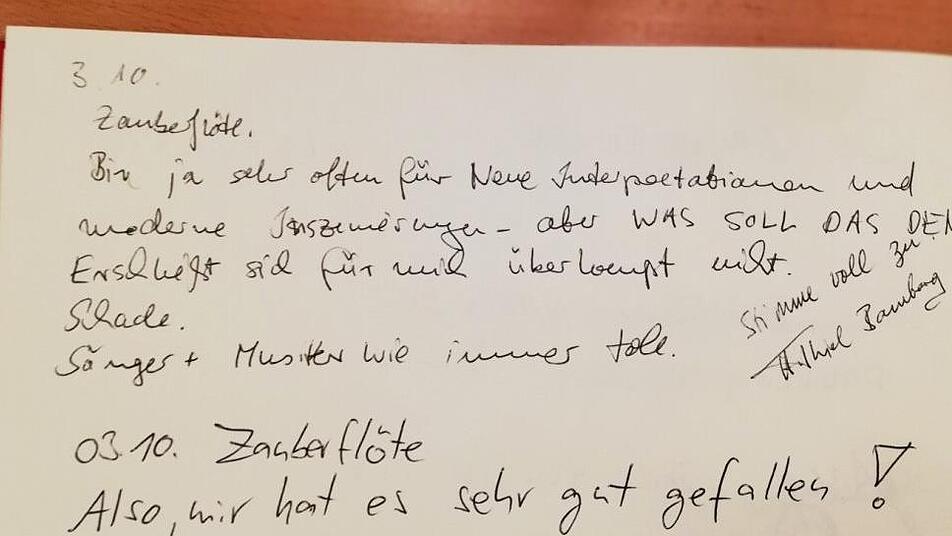 3.10.
Zauberflöte.
Bin ja sehr offen für Neue Interpretationen und
moderne Inszenierungen - aber WAS SOLL DAS DEN
Erschließt sich für mich überhaupt nicht.
Schade.
Sänger + Musiker wie immer toll.
Stimme voll zu!
H. Thiel Bamberg
03.10. Zauberflöte
Also, mir hat es sehr gut gefallen!